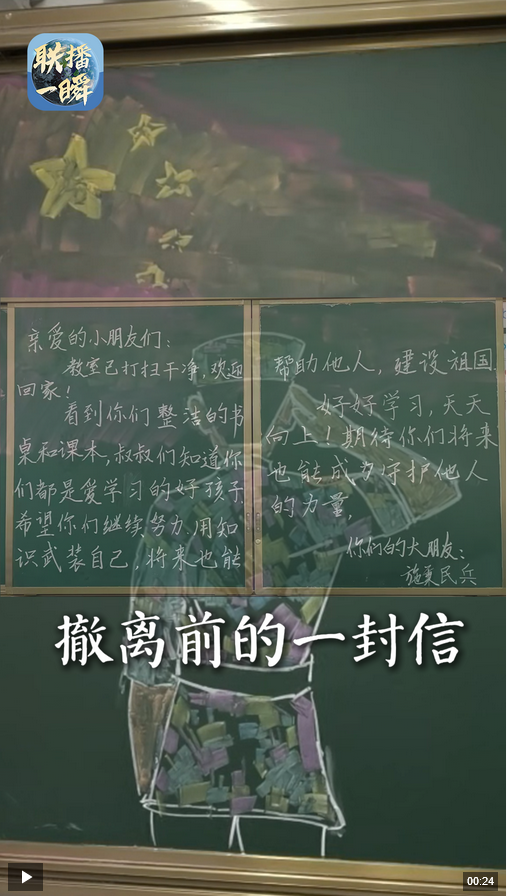 联播
一瞬
亲爱的小朋友们：
教室已打扫干净，欢迎
回家！
看到你们整洁的书
桌和课本，叔叔们知道你
们都是爱学习的好孩子
希望你们继续努力，用知
识武装自己，将来也能
帮助他人，建设祖国.
好好学习，天天
向上！期待你们将来
也能成为守护他人
的力量，
你们的大朋友：
施秉民兵
撤离前的一封信
00:24